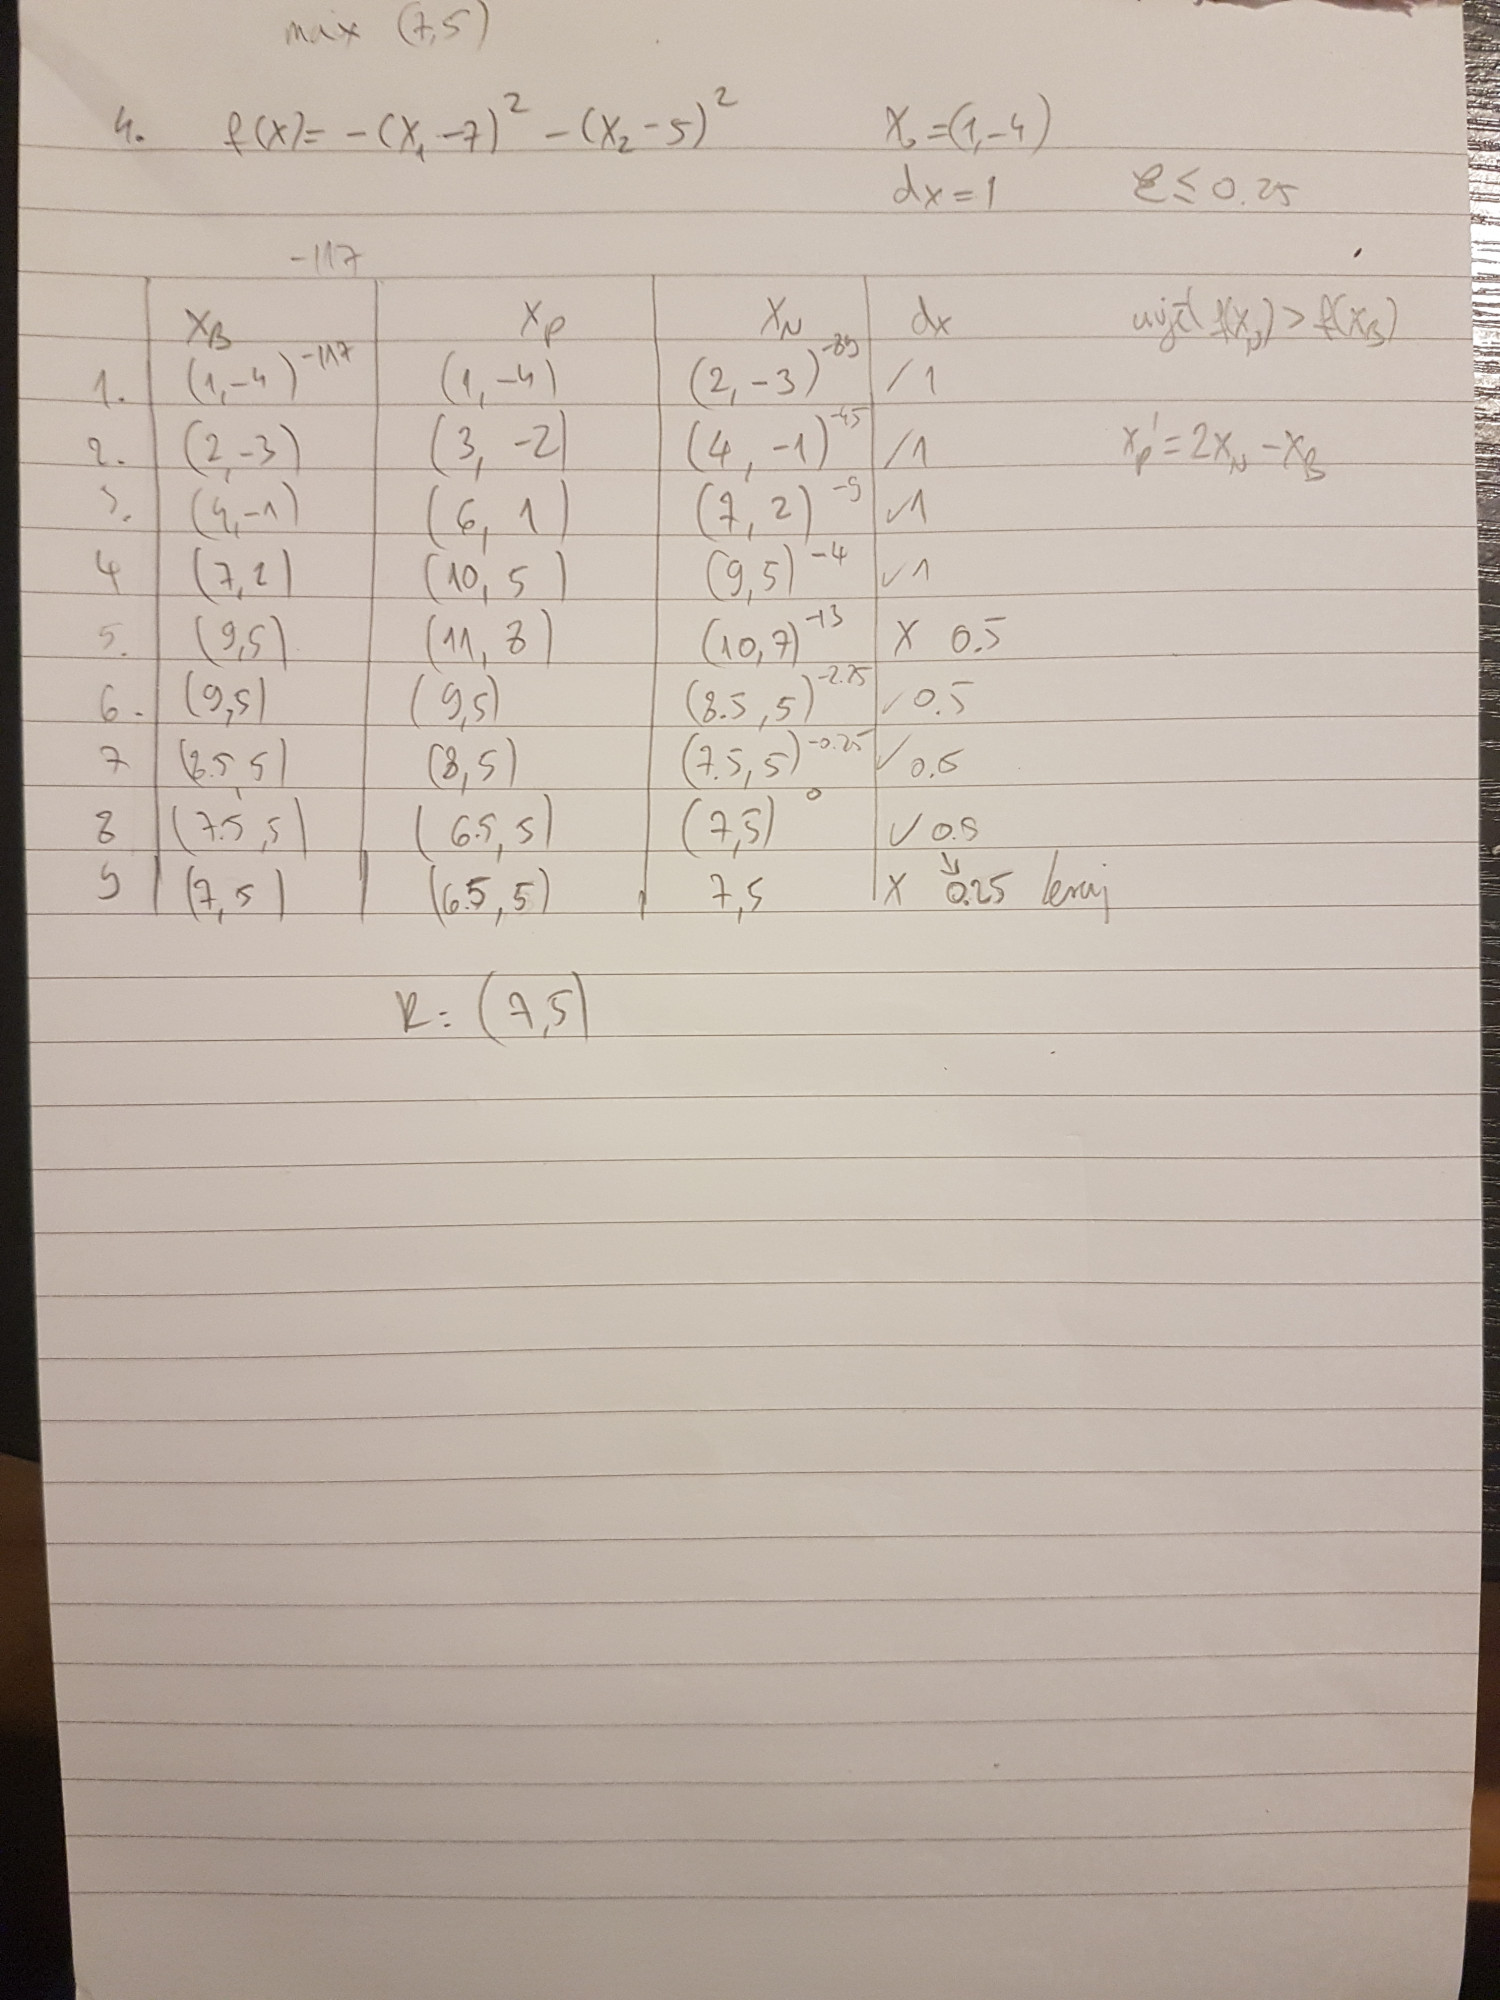 max (7,5)
4. f(x)= -(x₁-7)² - (x₂-5)² x₀=(1,-4)
dx=1 e≤0.25
-117
xB xp xN dx uvjet f(xN) > f(xB)
1. (1,-4)⁻¹¹⁷ (1,-4) (2,-3)⁻⁸⁹ ✓1
2. (2,-3) (3,-2) (4,-1)⁻⁴⁵ ✓1 xp'=2xN-xB
3. (4,-1) (6,1) (7,2)⁻⁹ ✓1
4 (7,2) (10,5) (9,5)⁻⁴ ✓1
5. (9,5) (11,8) (10,7)⁻¹³ X 0.5
6. (9,5) (9,5) (8.5,5)^-2.25 ✓0.5
7 (8.5,5) (8,5) (7.5,5)^-0.25 ✓0.5
8 (7.5,5) (6.5,5) (7,5)⁰ ✓0.5
9 (7,5) (6.5,5) 7,5 X ↘0.25 kraj
R= (7,5)